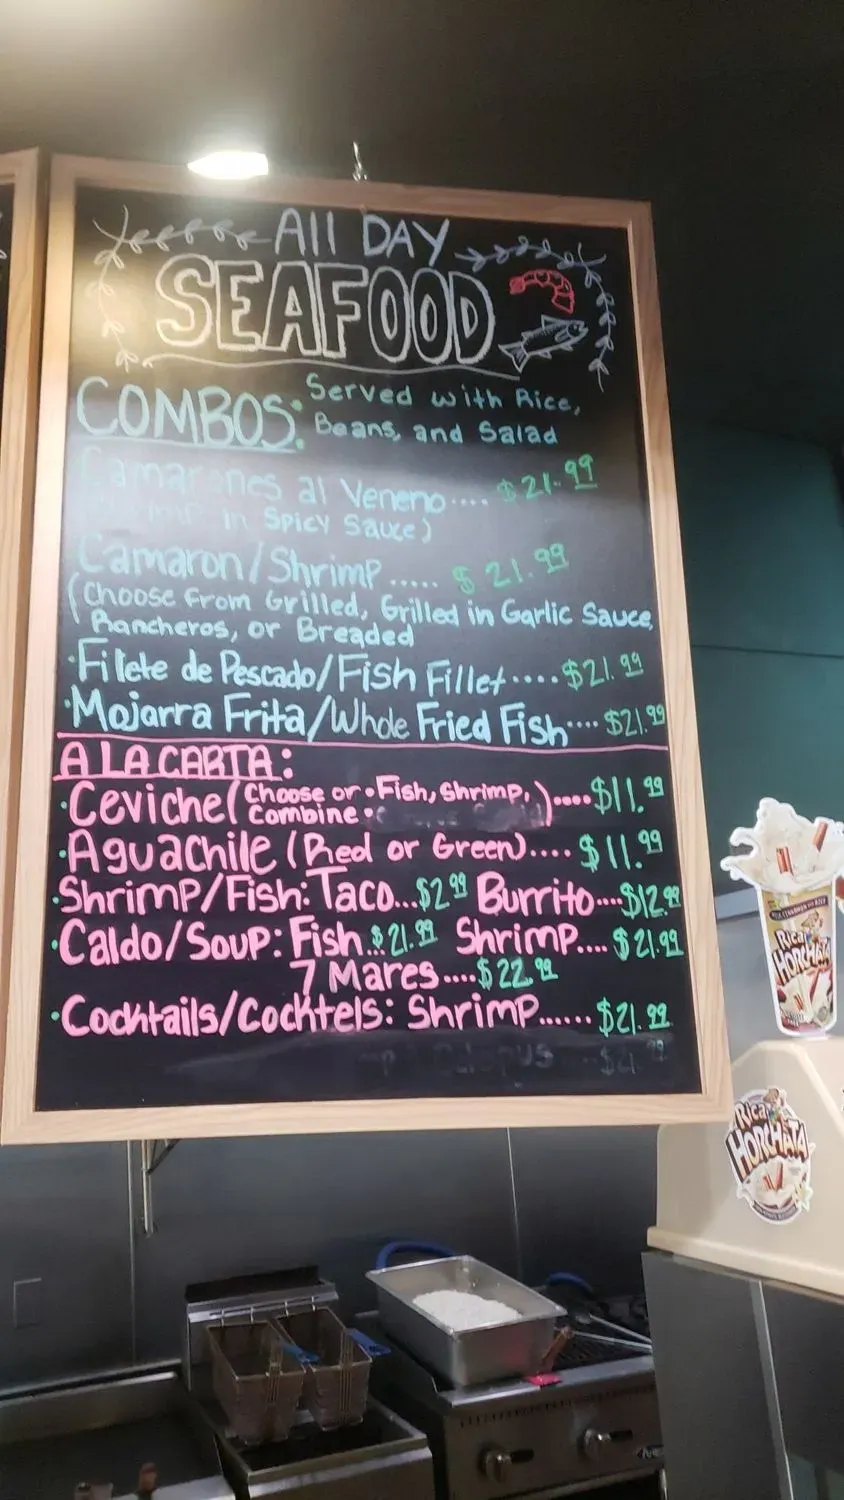 All DAY
SEAFOOD
COMBOS: Served with Rice,
Beans, and Salad
Camarones al Veneno.... $21.99
in Spicy Sauce)
Camaron/Shrimp..... $21.99
(Choose from Grilled, Grilled in Garlic Sauce,
Rancheros, or Breaded
·Filete de Pescado/Fish Fillet....$21.99
·Mojarra Frita/Whole Fried Fish....$21.99
A LA CARTA:
·Ceviche (Choose or •Fish, Shrimp,)....$11.99
Combine•
·Aguachile (Red or Green)....$11.99
·Shrimp/Fish: Taco...$2.99 Burrito....$12.99
·Caldo/Soup: Fish...$21.99 Shrimp....$21.99
7 Mares....$22.99
·Cocktails/Cocktels: Shrimp......$21.99
Octopus $21.99
Rica
HORCHATA
Rica
HORCHATA